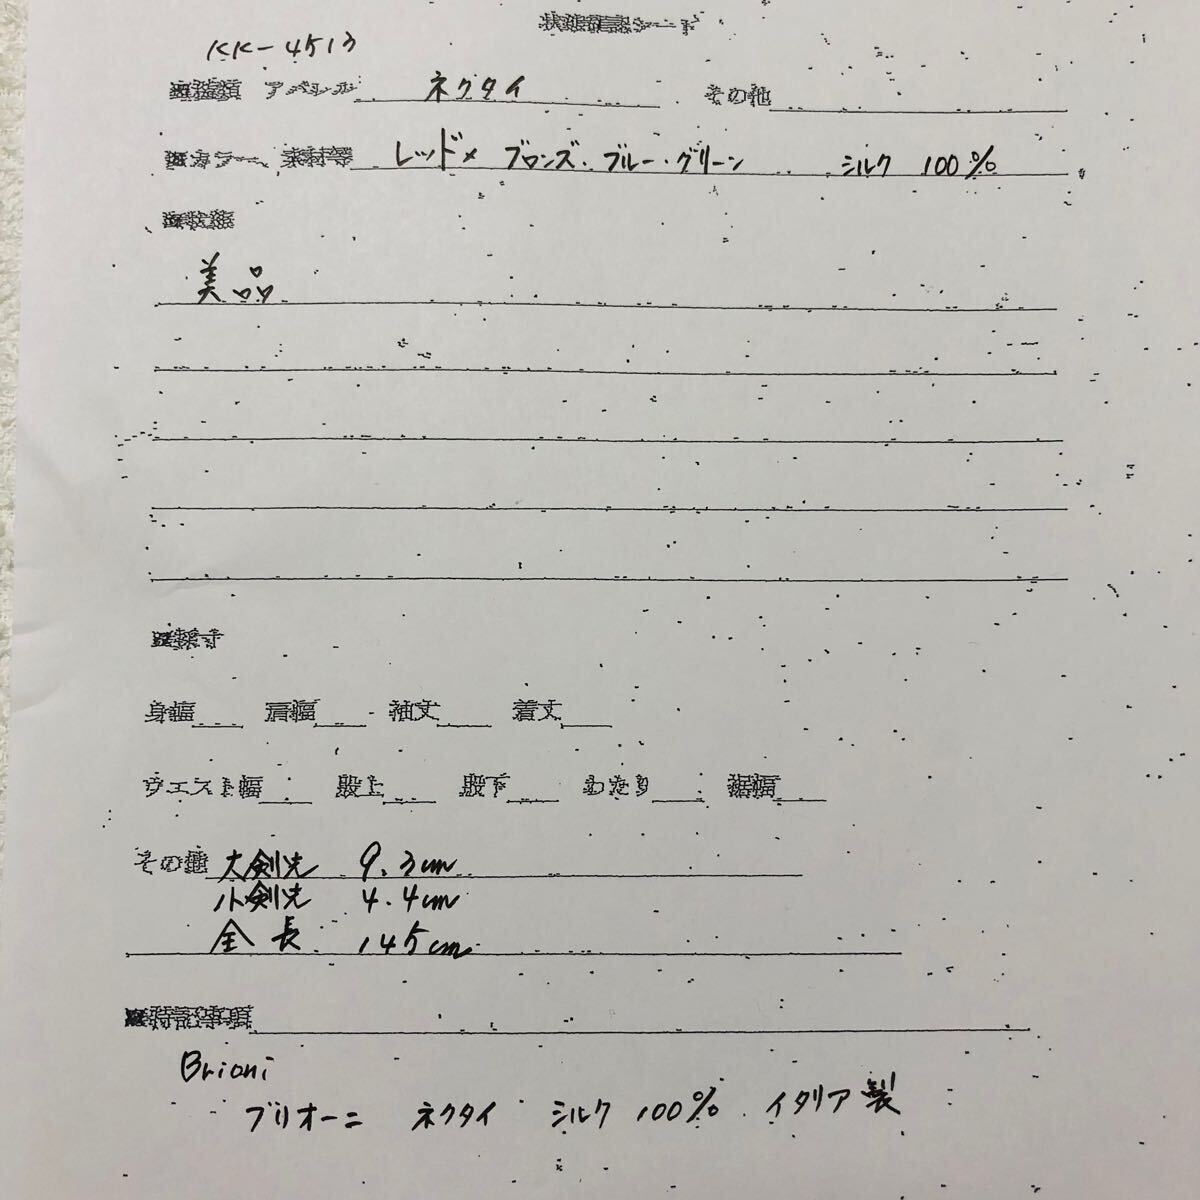 状態確認シート
KK-4513
■種類 アパレル ネクタイ その他
■カラー、素材等 レッド× ブロンズ・ブルー・グリーン シルク 100%
■状態
美品
■採寸
身幅 肩幅 袖丈 着丈
ウエスト幅 股上 股下 わたり 裾幅
その他 大剣先 9.3cm
小剣先 4.4cm
全長 145cm
■特記事項
Brioni
ブリオーニ ネクタイ シルク 100% イタリア製